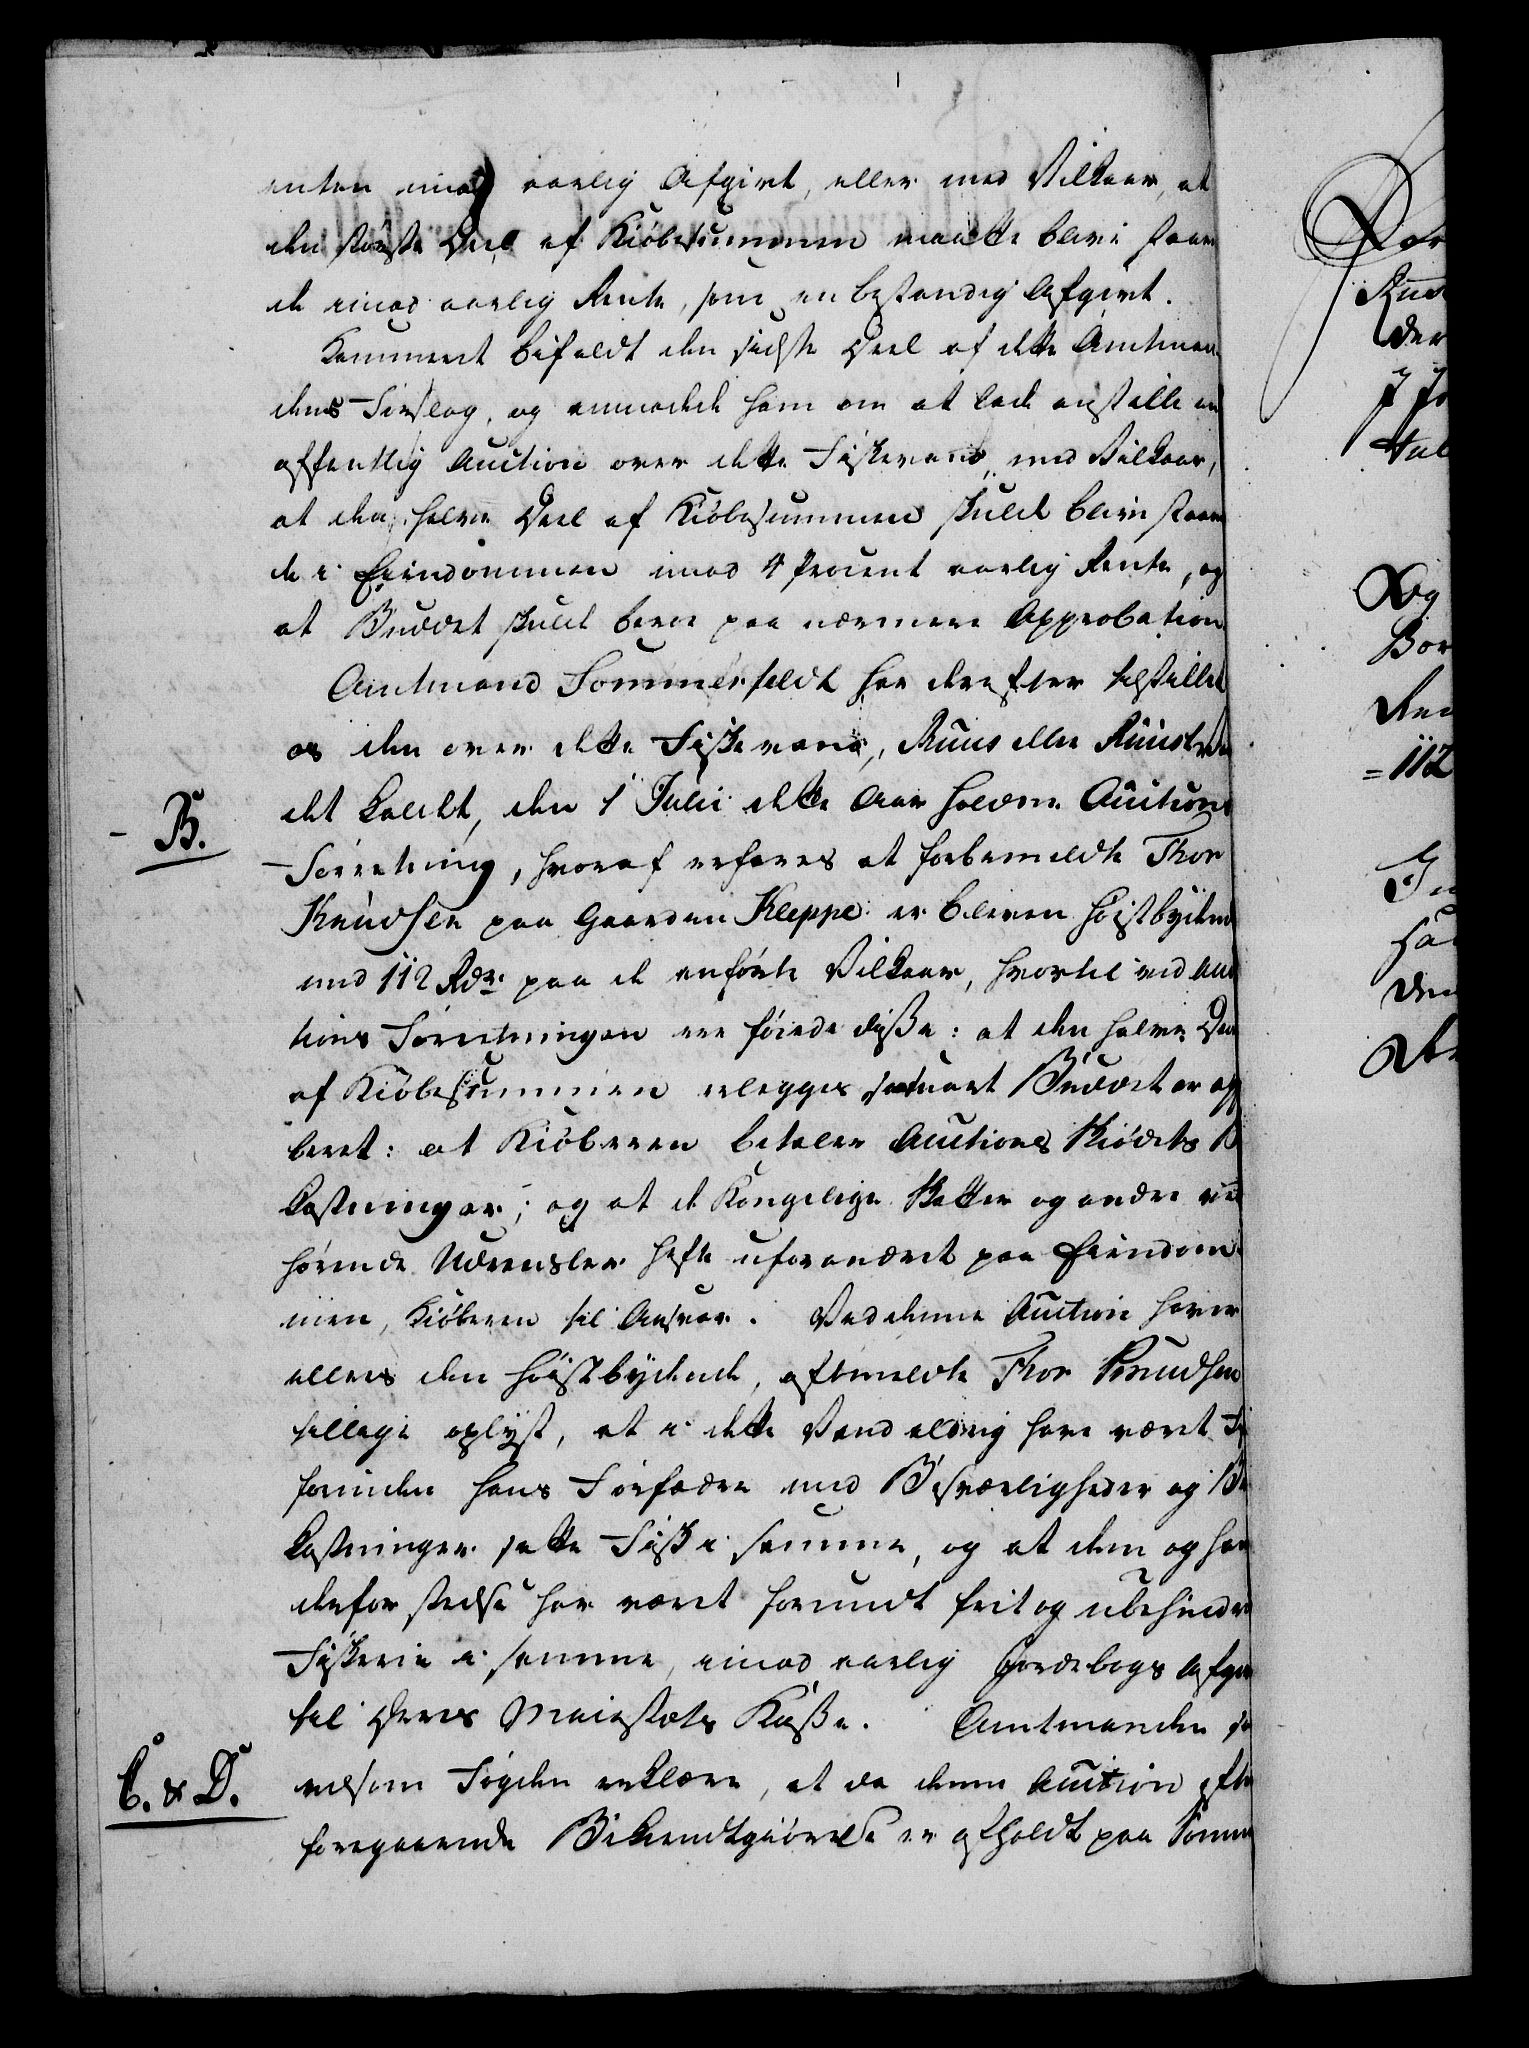 enten imod aarlig Afgivt, eller med Vilkaar, at
den største Deel af Kiöbesummen maatte blive staaen
de imod aarlig Rente, som en bestandig Afgivt.
Kammeret bifaldt den sidste Deel af dette Amtman
dens Forslag, og anmodede ham om at lade anstille en
offentlig Auction over dette Fiskevand, med Vilkaar,
at den halve Deel af Kiöbesummen skulde blive staaen
de i Eiendommen imod 4 Procent aarlig Rente, og
at Buddet skulde beroe paa nærmere Approbation.
Amtmand Sommerfeldt har derefter tilstillet
os den over dette Fiskevand, Ruus eller Ruust
det kaldet, den 1 Julii dette Aar holdne Auctions
B.
Forretning, hvoraf erfares at forbemeldte Thor
Knudsen paa Gaarden Kleppe er bleven höistbydende
med 112 Rdr. paa de anförte Vilkaar, hvortil ved Auc
tions Forretningen ere föiede disse: at den halve Deel
af Kiöbesummen erlegges saasnart Buddet er ap
beret: at Kiöberen betaler Auctions Skiödets Be
kostninger; og at de Kongelige Skatter og andre ved
hörende Udreedsler hefte uforandret paa Eiendom
men, Kiöberen til Ansvar. Ved denne Auction haver
ellers den höistbydende, oftmeldte Thor Knudsen
tillige oplyst, at i dette Vand aldrig have været Fi
forinden hans Forfædre med Besværligheder og Be
kostninger satte Fisk i samme, og at dem og han
derfor stedse har været forundt frit og ubehindret
Fiskerie i samme, imod aarlig Jordebogs Afgivt
til Deres Maiestæts Kasse. Amtmanden saa
C. & D.
velsom Fogden erklære, at da denne Auction efter
foregaaende Bekiendtgiörelse er afholdt paa Somme
For
Ruus
der
Og
Bor
Ren
=112